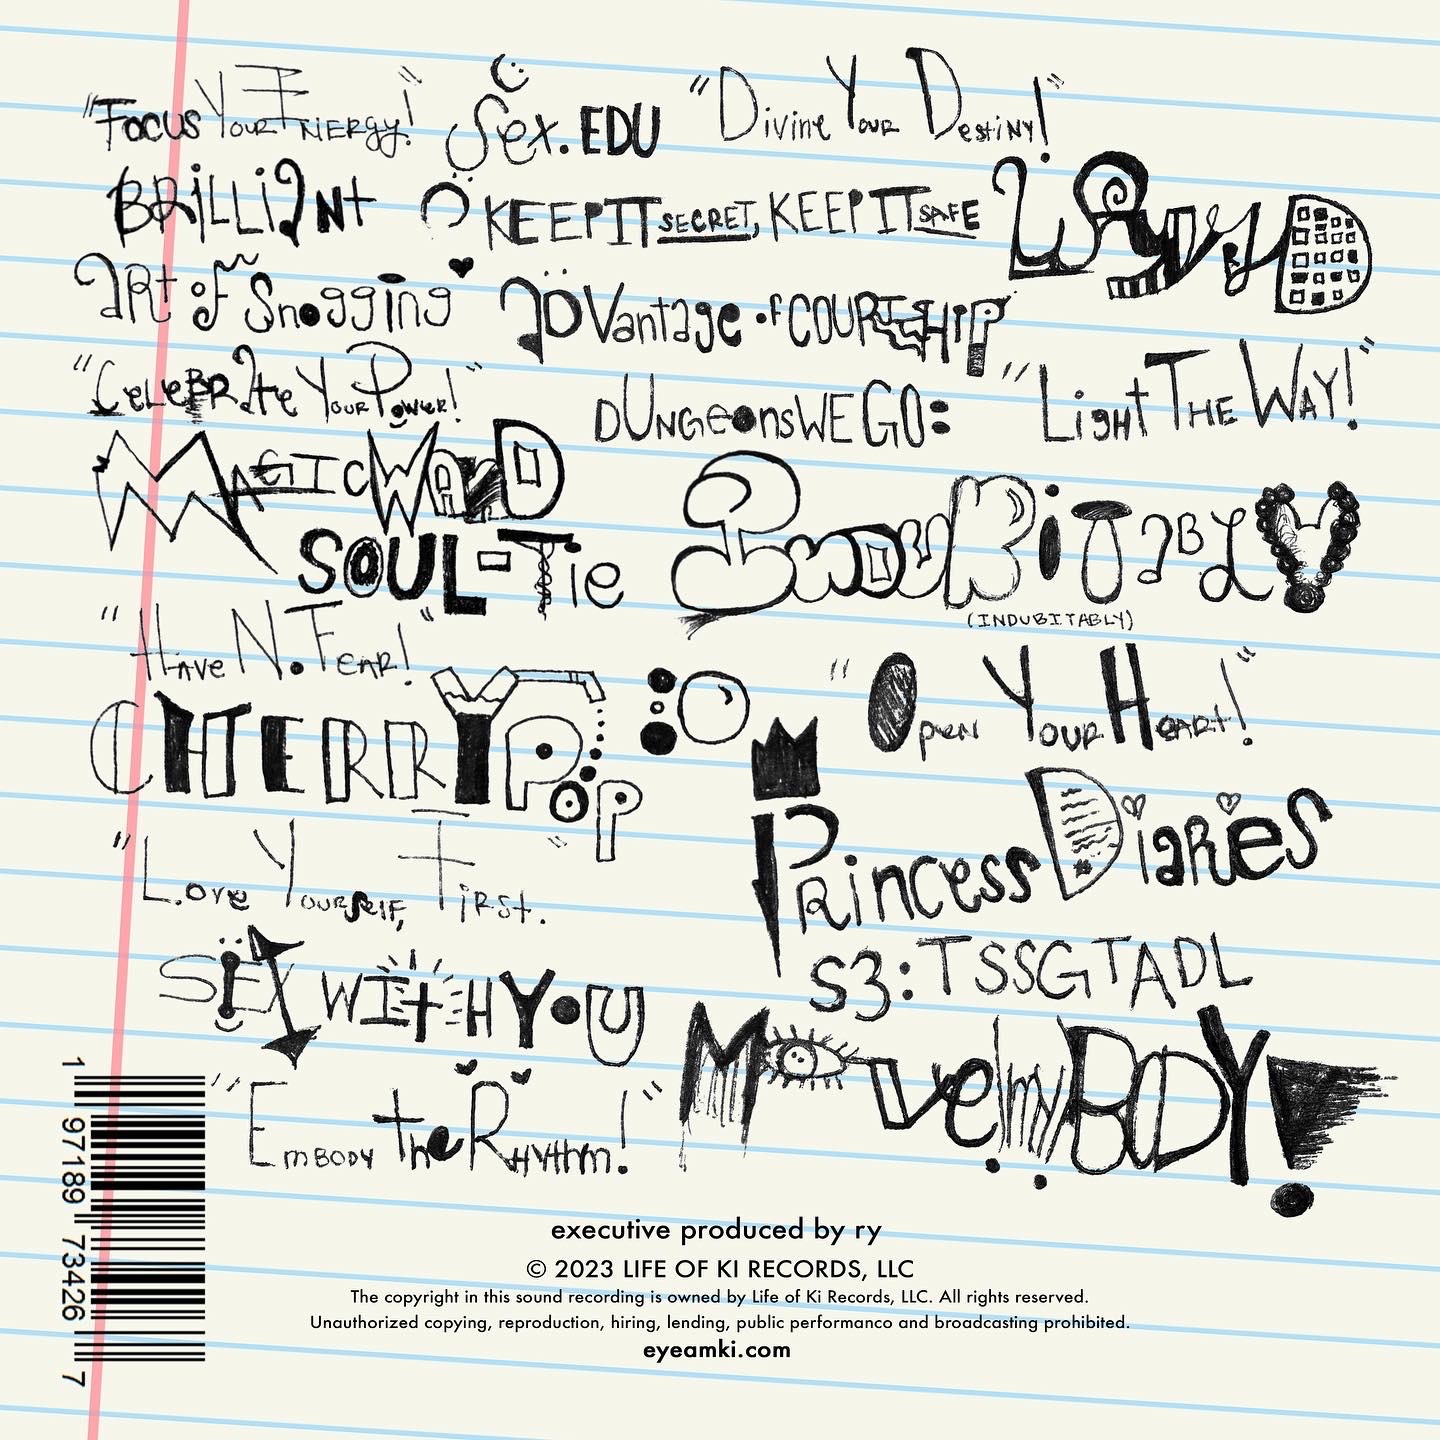 "Focus Your Energy!" Sex.EDU "Divine Your Destiny!"
BRILLIANT KEEP IT SECRET, KEEP IT SAFE
Art of Snogging ADVantage of COURTSHIP
"CeleBRAte Your Power!" DUNGeonsWEGO: "Light THE WAY!"
MAGIC WAND
SOUL-Tie INDUBiTABLY
(INDUBITABLY)
"Have No Fear!" "Open Your Heart!"
CHERRY Pop
Princess Diaries
"Love Yourself, First."
S3: TSSGTADL
SEX WITH YOU MovemyBODY!
"Embody the Rhythm!"
1 97189 73426 7
executive produced by ry
© 2023 LIFE OF KI RECORDS, LLC
The copyright in this sound recording is owned by Life of Ki Records, LLC. All rights reserved.
Unauthorized copying, reproduction, hiring, lending, public performanco and broadcasting prohibited.
eyeamki.com